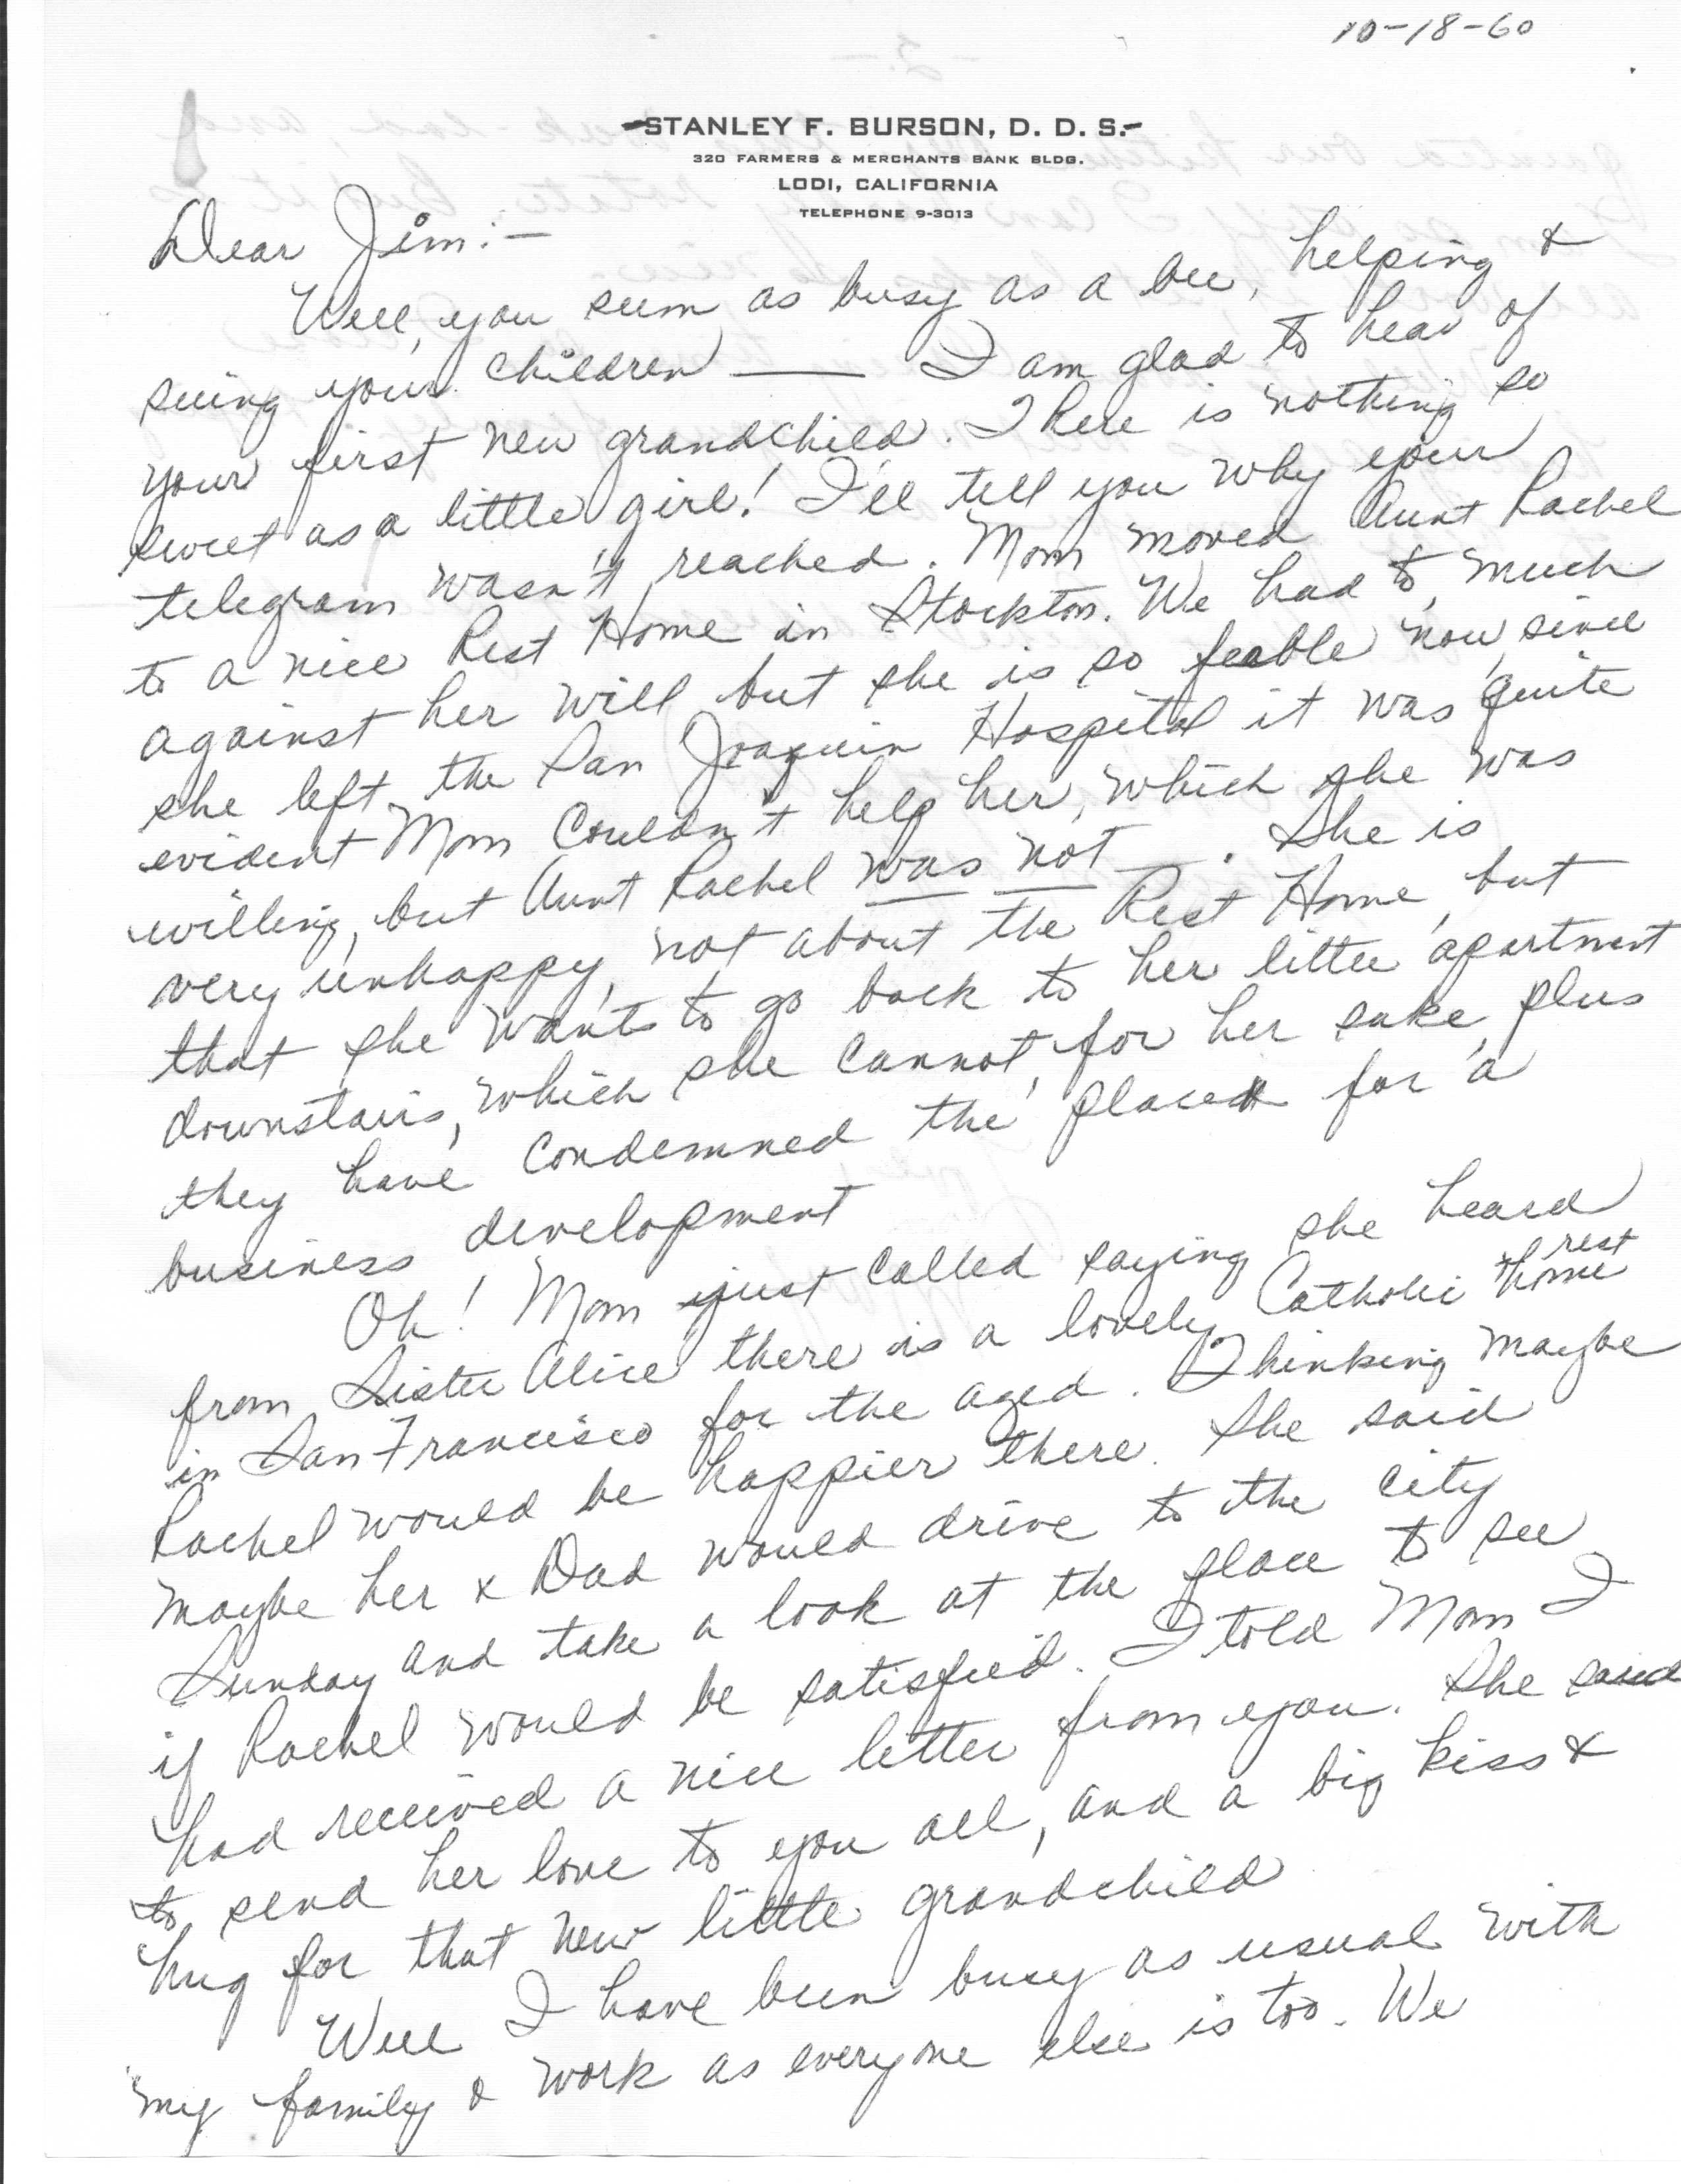 10-18-60
STANLEY F. BURSON, D. D. S.
320 FARMERS & MERCHANTS BANK BLDG.
LODI, CALIFORNIA
TELEPHONE 9-3013
Dear Jim:—
Well, you seem as busy as a bee, helping &
seeing your children —— I am glad to hear of
your first new grandchild. There is nothing so
sweet as a little girl! I'll tell you why your
telegram wasn't reached. Mom moved Aunt Rachel
to a nice Rest Home in Stockton. We had to, much
against her will but she is so feeble now, since
she left the San Joaquin Hospital it was quite
evident Mom couldn't help her, which she was
willing, but Aunt Rachel was not —. She is
very unhappy, not about the Rest Home, but
that she wants to go back to her little apartment
downstairs, which she cannot, for her sake, plus
they have condemned the place for a
business development
Oh! Mom just called saying she heard
from Sister Alice there is a lovely Catholic rest home
in San Francisco for the aged. Thinking maybe
Rachel would be happier there. She said
maybe her & Dad would drive to the city
Sunday and take a look at the place to see
if Rachel would be satisfied. I told Mom I
had received a nice letter from you. She said
to send her love to you all, and a big kiss &
hug for that new little grandchild
Well I have been busy as usual with
my family & work as everyone else is too. We